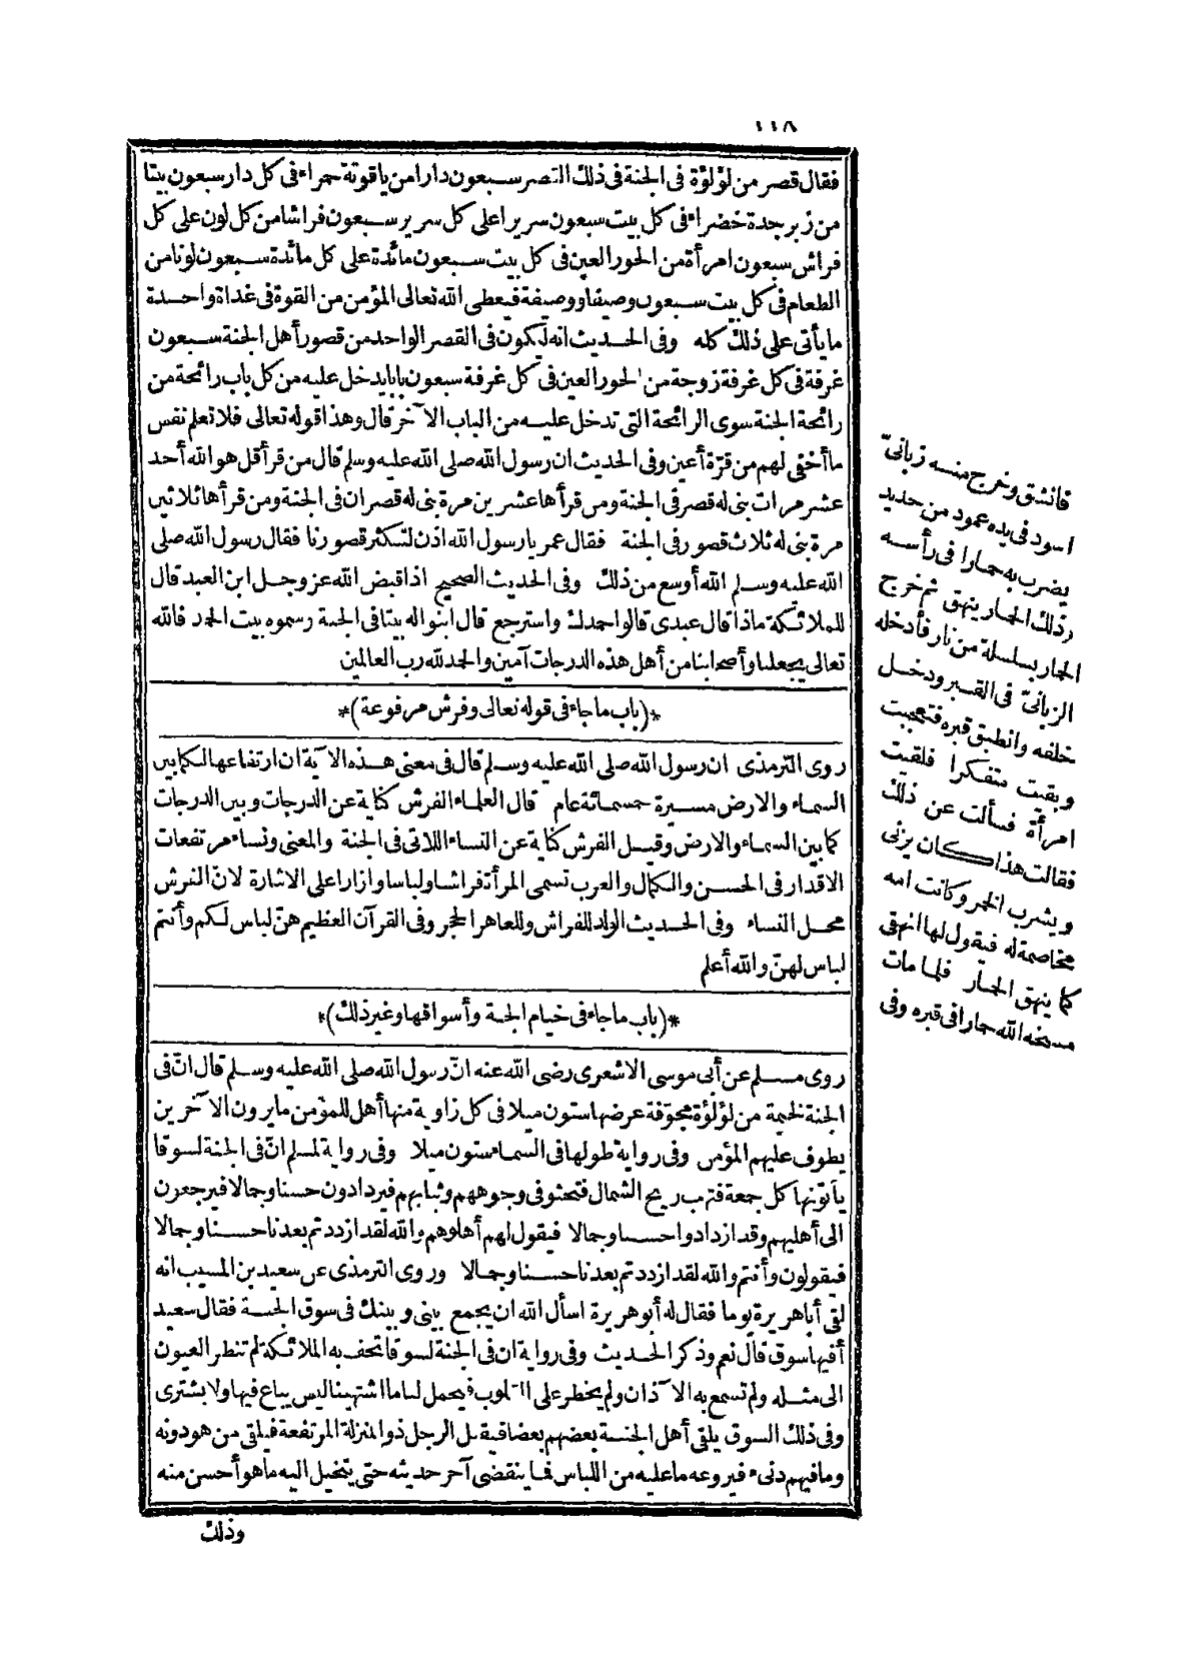 ١١٨
فقال قصر من لؤلؤة فى الجنة فى ذلك القصر سبعون دارا من ياقوتة حمراء فى كل دار سبعون بيتا
من زبرجدة خضراء فى كل بيت سبعون سريرا على كل سرير سبعون فراشا من كل لون على كل
فراش سبعون امرأة من الحور العين فى كل بيت سبعون مائدة على كل مائدة سبعون لونا من
الطعام فى كل بيت سبعون وصيفا ووصيفة فيعطى الله تعالى المؤمن من القوة فى غداة واحدة
ما يأتى على ذلك كله وفى الحديث انه ليكون فى القصر الواحد من قصور أهل الجنة سبعون
غرفة فى كل غرفة زوجة من الحور العين فى كل غرفة سبعون بابا يدخل عليه من كل باب رائحة من
رائحة الجنة سوى الرائحة التى تدخل عليه من الباب الآخر قال وهذا قوله تعالى فلا تعلم نفس
ما أخفى لهم من قرّة أعين وفى الحديث ان رسول الله صلى الله عليه وسلم قال من قرأ قل هو الله أحد
عشر مرات بنى له قصر فى الجنة ومن قرأها عشرين مرة بنى له قصران فى الجنة ومن قرأها ثلاثين
مرة بنى له ثلاث قصور فى الجنة فقال عمر يا رسول الله اذن لتكثر قصورنا فقال رسول الله صلى
الله عليه وسلم الله أوسع من ذلك وفى الحديث الصحيح اذا قبض الله عز وجل ابن العبد قال
للملائكة ماذا قال عبدى قالوا حمدك واسترجع قال ابنوا له بيتا فى الجنة وسموه بيت الحمد فالله
تعالى يجعلنا وأصحابنا من أهل هذه الدرجات آمين والحمد لله رب العالمين
*(باب ما جاء فى قوله تعالى وفرش مرفوعة)*
روى الترمذى ان رسول الله صلى الله عليه وسلم قال فى معنى هذه الآية ان ارتفاعها لكما بين
السماء والارض مسيرة خمسمائة عام قال العلماء الفرش كناية عن الدرجات وبين الدرجات
كما بين السماء والارض وقيل الفرش كناية عن النساء اللاتى فى الجنة والمعنى ونساء مرتفعات
الاقدار فى الحسن والكمال والعرب تسمى المرأة فراشا ولباسا وازارا على الاشارة لان الفرش
محل النساء وفى الحديث الولد للفراش وللعاهر الحجر وفى القرآن العظيم هنّ لباس لكم وأنتم
لباس لهنّ والله أعلم
*(باب ما جاء فى خيام الجنة وأسواقها وغير ذلك)*
روى مسلم عن أبى موسى الاشعرى رضى الله عنه انّ رسول الله صلى الله عليه وسلم قال انّ فى
الجنة لخيمة من لؤلؤة مجوّفة عرضها ستون ميلا فى كل زاوية منها أهل للمؤمن ما يرون الآخرين
يطوف عليهم المؤمن وفى رواية طولها فى السماء ستون ميلا وفى رواية لمسلم انّ فى الجنة لسوقا
يأتونها كل جمعة فتهب ريح الشمال فتحثو فى وجوههم وثيابهم فيزدادون حسنا وجمالا فيرجعون
الى أهليهم وقد ازدادوا حسنا وجمالا فيقول لهم أهلوهم والله لقد ازددتم بعدنا حسنا وجمالا
فيقولون وأنتم والله لقد ازددتم بعدنا حسنا وجمالا وروى الترمذى عن سعيد بن المسيب انه
لقى أبا هريرة يوما فقال له أبو هريرة اسأل الله ان يجمع بينى وبينك فى سوق الجنة فقال سعيد
أفيها سوق قال نعم وذكر الحديث وفى رواية ان فى الجنة لسوقا تحف به الملائكة لم تنظر العيون
الى مثله ولم تسمع به الآذان ولم يخطر على القلوب فيحمل لنا ما اشتهينا ليس يباع فيها ولا يشترى
وفى ذلك السوق يلقى أهل الجنة بعضهم بعضا فيقبل الرجل ذو المنزلة المرتفعة فيلقى من هو دونه
وما فيهم دنىء فيروعه ما عليه من اللباس فما ينقضى آخر حديثه حتى يتخيل اليه ما هو أحسن منه
وذلك
فانشق وخرج منه زبانىّ
اسود فى يده عمود من حديد
يضرب به حمارا فى رأسه
وذلك الحمار ينهق ثم خرج
الحمار بسلسلة من نار فأدخله
الزبانىّ فى القبر ودخل
خلفه وانطبق قبره فتعجبت
وبقيت متفكرا فلقيت
امرأة فسألت عن ذلك
فقالت هذا كان يزنى
ويشرب الخمر وكانت امه
مخاصمة له فيقول لها انهقى
كما ينهق الحمار فلما مات
مسخه الله حمارا فى قبره وفى